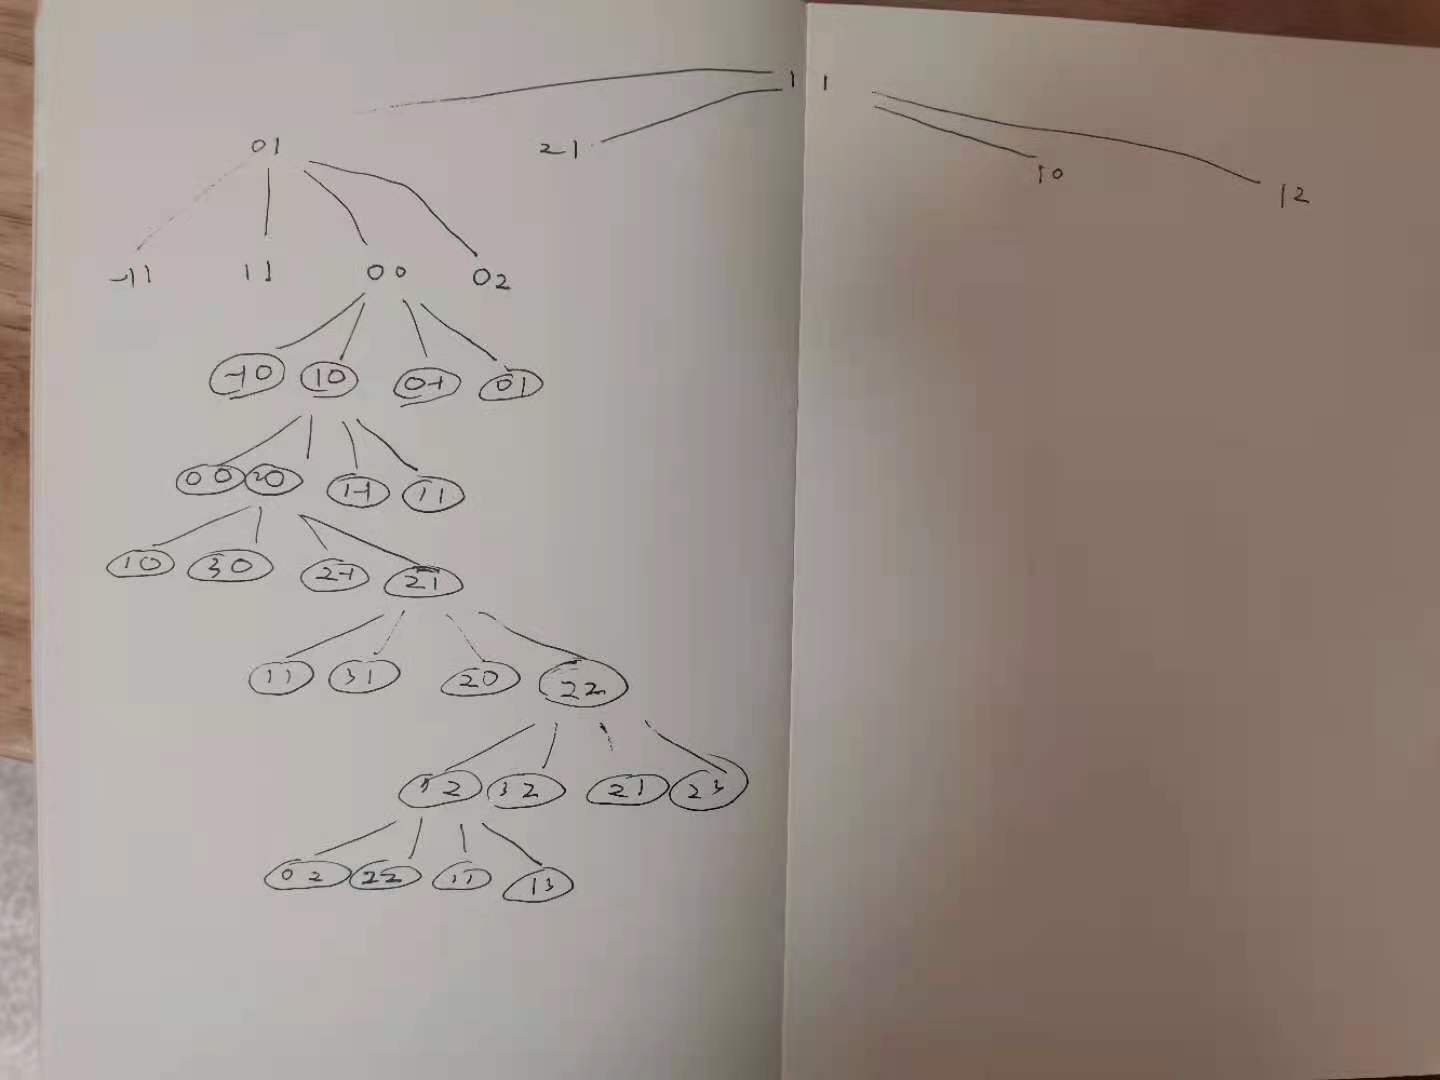 1 1
01 21 10 12
-11 11 00 02
-10 10 0-1 01
00 20 1-1 11
10 30 2-1 21
11 31 20 22
12 32 21 23
02 22 11 13